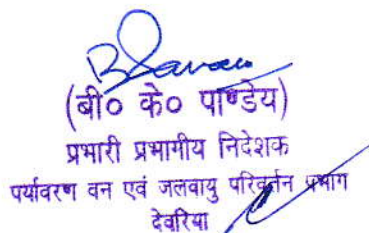 (बी० के० पाण्डेय)
प्रभारी प्रभागीय निदेशक
पर्यावरण वन एवं जलवायु परिवर्तन प्रभाग
देवरिया